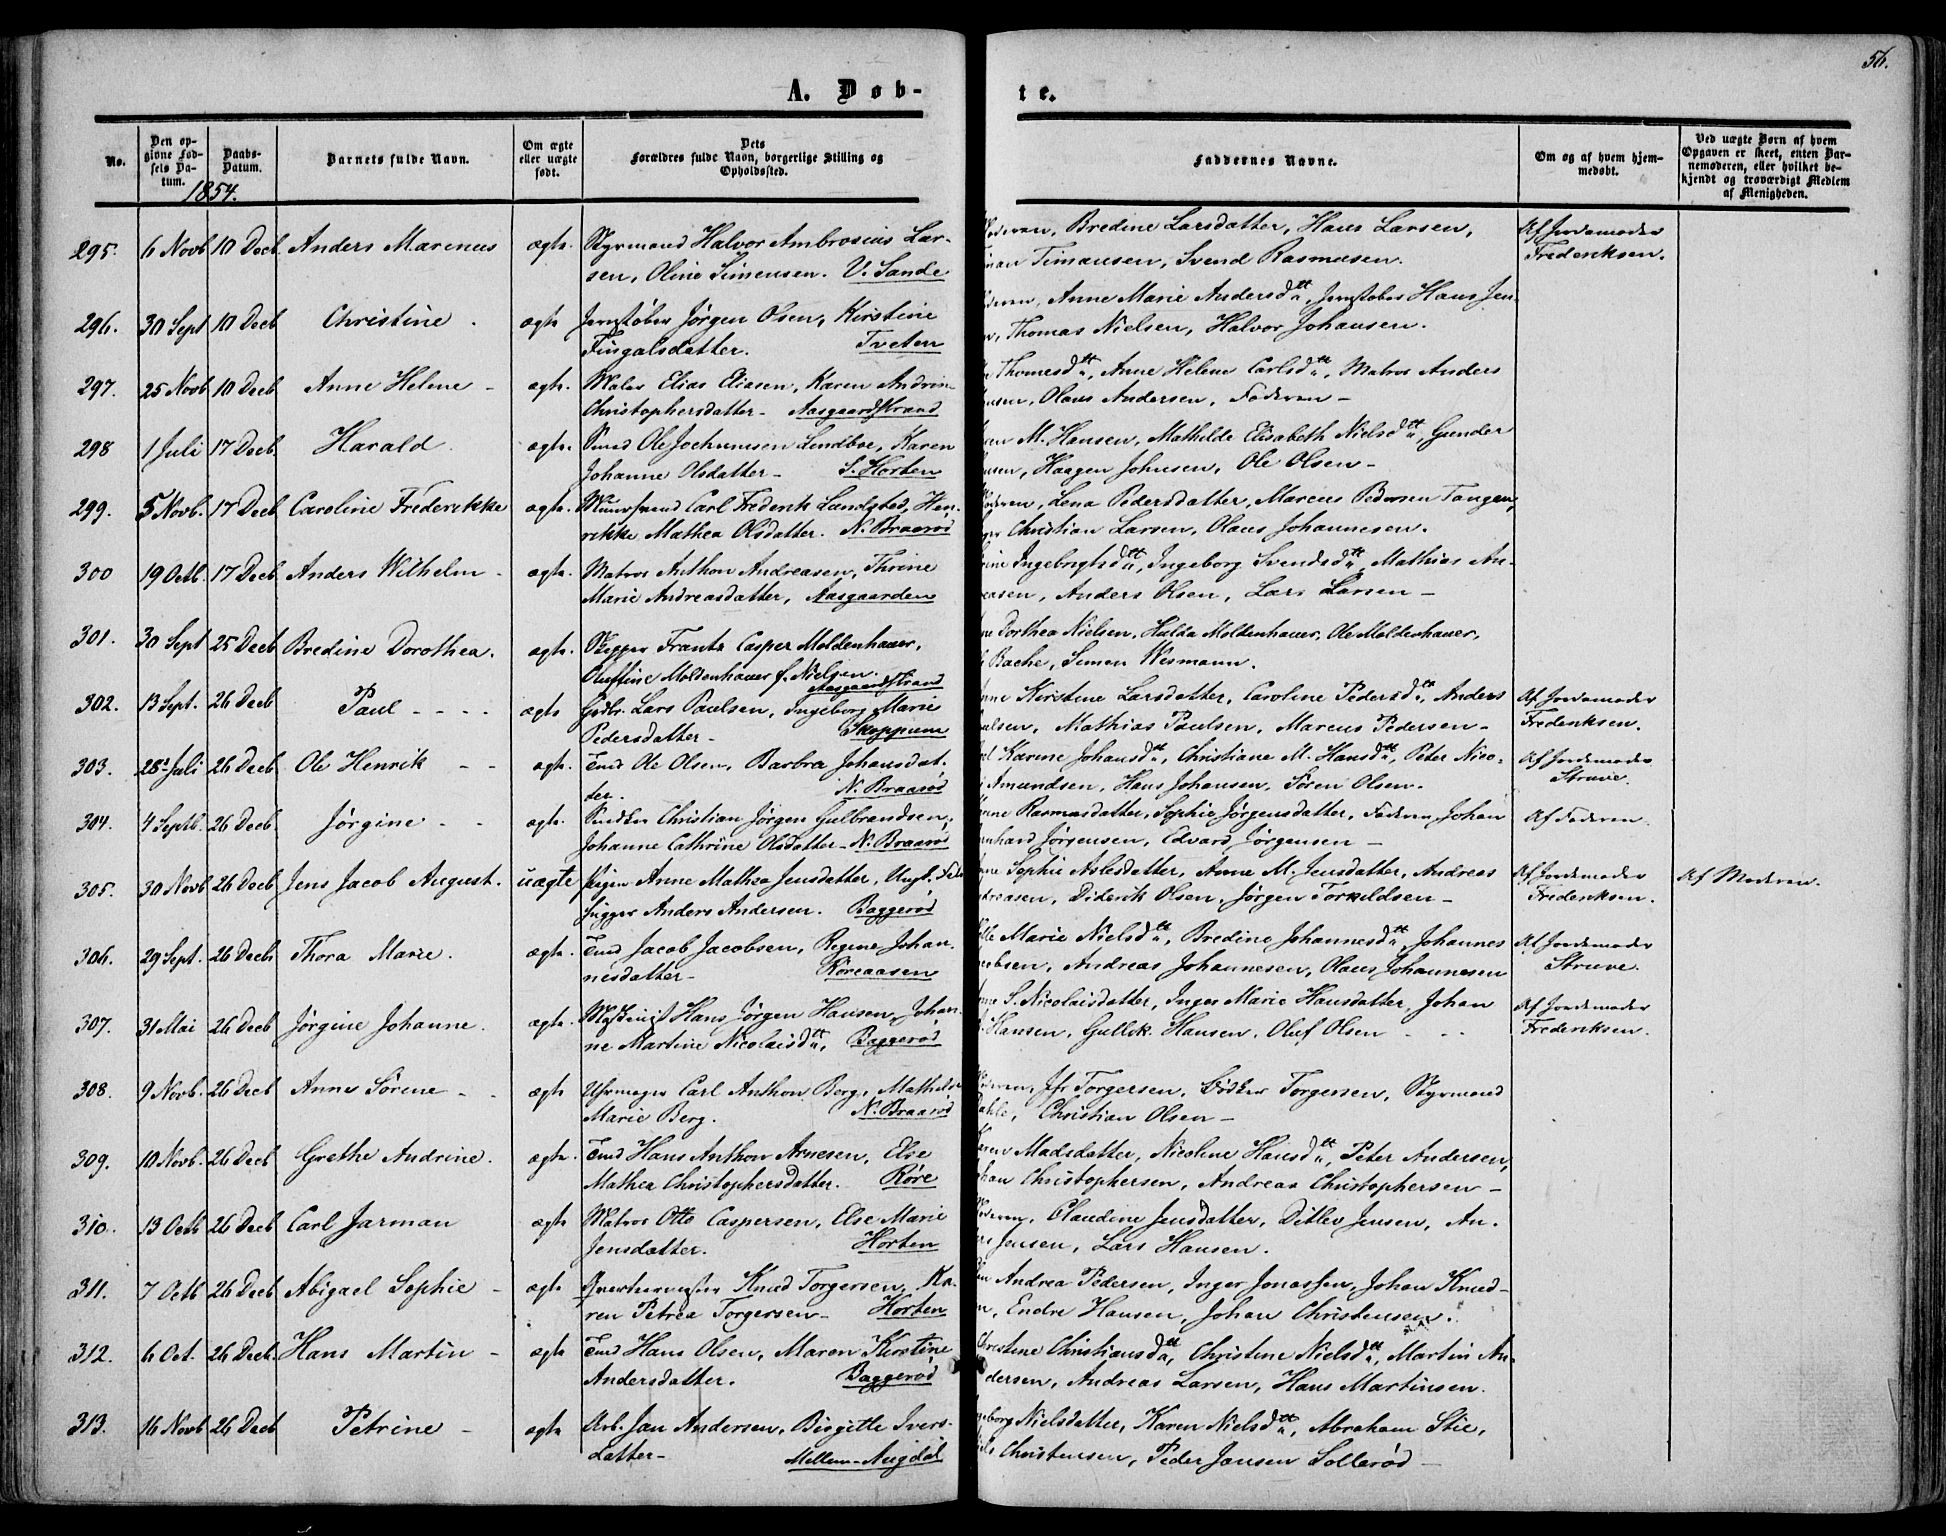 56.
A. Døb-
te.
No.
Den op-
givne Fød-
sels Da-
tum.
Daabs-
Datum.
Barnets fulde Navn.
Om ægte
eller uægte
født.
Dets
Forældres fulde Navn, borgerlige Stilling og
Opholdssted.
Faddernes Navne.
Om og af hvem hjem-
medøbt.
Ved uægte Børn af hvem
Opgaven er skeet, enten Bar-
nemoderen, eller hvilket be-
kjendt og troværdigt Medlem
af Menigheden.
1854.
295. 6 Novb 10 Decb Anders Marenus ægte. Styrmand Halvor Ambrosius Lar-
sen, Oline Simensen. V. Sande
Bredine Larsdatter, Hans Larsen,
Timansen, Svend Rasmusen.
Af Jordemoder
Frederiksen.
296. 30 Sept 10 Decb Christine. ægte Jernstøber Jørgen Olsen, Kirstine
Fingalsdatter. Tveten
Anne Marie Andersdtr, Jernstøber Hans Jen-
Thomas Nielsen, Halvor Johansen.
297. 25 Novb 10 Decb Anne Helene - ægte. Maler Elias Eliasen, Karen Andrine
Christophersdatter - Aasgaardstrand
Thomesdtr, Anne Helene Carlsdtr, Matros Anders
Olaus Andersen, Faderen -
298 1 Juli 17 Decb Harald. ægte. Smed Ole Jochumsen Sendboe, Karen
Johanne Olsdatter - S. Horten
M. Hansen, Mathilde Elisabeth Nielsdtr, Gunder
Haagen Johnsen, Ole Olsen -
299. 5 Novb. 17 Decb Caroline Frederikke ægte. Muursvend Carl Frederik Landsted, Hen-
rikke Mathea Olsdatter. N. Braarød
Lena Pedersdatter, Marcus Pedersen Tangen,
Christian Larsen, Olaus Johannesen.
300 19 Octb. 17 Decb Anders Wilhelm - ægte. Matros Anthon Andreasen, Thrine
Marie Andreasdatter, Aasgaarden
Ingebrigtsdtr, Ingeborg Svendsdtr, Mathias An-
reasen, Anders Olsen, Lars Larsen -
301. 30 Sept 25 Decb Bredine Dorothea. ægte. Skipper Frantz Casper Moldenhauer,
Oluffine Moldenhauer f. Nielsen. Aasgaardstrand
Dorthea Nielsen, Hulda Moldenhauer, Ole Moldenhauer,
Bache, Simen Wesmann.
302. 13 Sept. 26 Decb Paul - - - - ægte Gdbr. Lars Paulsen, Ingeborg Marie
Pedersdatter - Skoppum
Kirstine Larsdatter, Caroline Pedersdtr, Anders
Mathias Paulsen, Marcus Pedersen -
Af Jordemoder
Frederiksen.
303. 28 Juli 26 Decb Ole Henrik - - ægt. Tmd Ole Olsen, Barbra Johansdat-
ter. N. Braarød
Karine Johansdtr, Christiane M. Hansdtr, Peter Nico-
Amundsen, Hans Johansen, Søren Olsen.
Af Jordemoder
Struve.
304. 4 Septb. 26 Decb Jørgine - - ægt. Snedker Christian Jørgen Gulbrandsen,
Johanne Cathrine Olsdatter - N. Braarød
Rasmusdatter, Sophie Jørgensdatter, Faderen, Johan
Jørgensen, Edvard Jørgensen -
Af Faderen.
305. 30 Novb 26 Decb Jens Jacob August. uægte Pigen Anne Mathea Jensdatter, Ungk.
Anders Andersen. Baggerød
Sophie Aslesdatter, Anne M. Jensdatter, Andreas
Diderik Olsen, Jørgen Torkildsen -
Af Jordemoder
Frederiksen.
Af Moderen.
306. 29 Sept. 26 Decb Thora Marie. ægte. Tmd Jacob Jacobsen, Regine Johan-
nesdatter - Røreaasen
Marie Nielsdtr, Bredine Johannesdtr, Johannes
Andreas Johannesen, Olaus Johannesen
Af Jordemoder
Struve.
307. 31 Mai 26 Decb Jørgine Johanne. ægte. Maskinist Hans Jørgen Hansen, Johan-
ne Martine Nicolaisdtr, Baggerød
S. Nicolaisdatter, Inger Marie Hansdatter, Johan
Hansen, Gullik Hansen, Oluf Olsen - -
Af Jordemoder
Frederiksen.
308. 9 Novb. 26 Decb Anne Sørene - - ægte Uhrmager Carl Anthon Berg, Mathilde
Marie Berg. N. Braarød
Jfr Torgersen, Bødker Torgersen, Styrmand
Christian Olsen -
309. 10 Novb. 26 Decb Grethe Andrine. ægte. Tmd Hans Anthon Arnesen, Else
Mathea Christophersdatter. Røre
Madsdatter, Nicoline Hansdtr, Peter Andersen,
Christophersen, Andreas Christophersen -
310. 13 Octb 26 Decb Carl Jarman ægte Matros Otto Caspersen, Else Marie
Jensdatter. Horten
Claudine Jensdatter, Ditlev Jensen, An-
Jensen, Lars Hansen.
311. 7 Octb 26 Decb Abigael Sophie - ægte Knud Torgersen, Ka-
ren Petrea Torgersen - Horten
Andrea Pedersen, Inger Jonassen, Johan Knud-
Endre Hansen, Johan Christensen.
312. 6 Oct. 26 Decb. Hans Martin - ægte Tmd Hans Olsen, Maren Kirstine
Andersdatter. Baggerød
Christiansdtr, Christine Nielsdtr, Martin An-
dersen, Andreas Larsen, Hans Martinsen.
313. 16 Novb 26 Decb Petrine - ægte Arb. Jan Andersen, Birgitte Ivers-
datter - Mellem-Augdal
Nielsdatter, Karen Nielsdtr, Abraham Stie,
Christensen, Peder Jansen Sollerød -